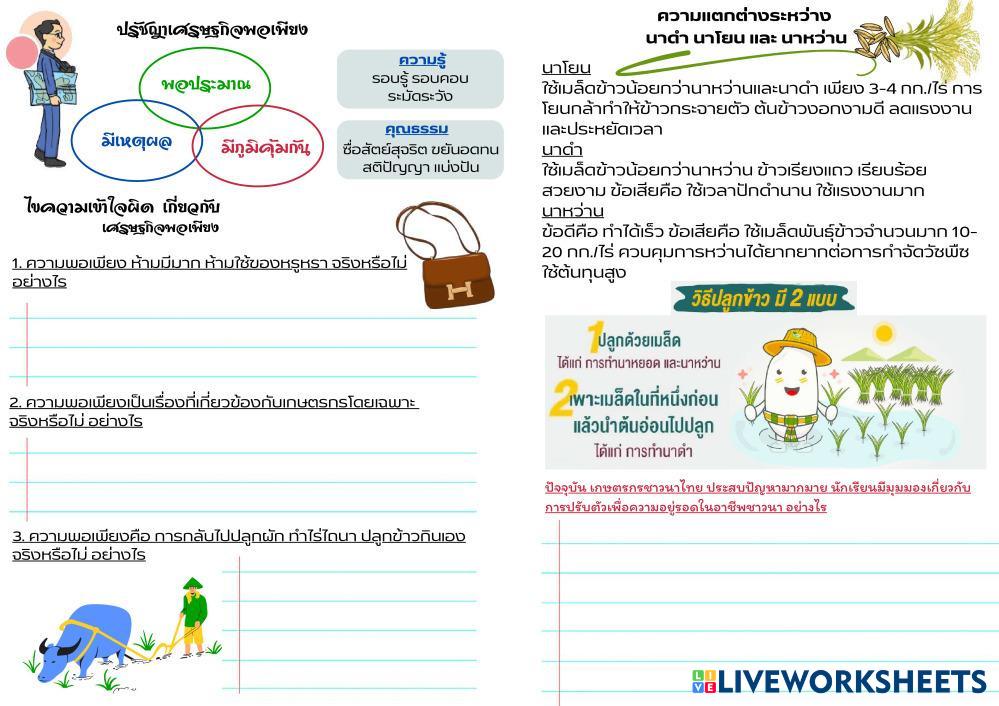 ปรัชญาเศรษฐกิจพอเพียง
พอประมาณ
มีเหตุผล
มีภูมิคุ้มกัน
ความรู้
รอบรู้ รอบคอบ
ระมัดระวัง
คุณธรรม
ซื่อสัตย์สุจริต ขยันอดทน
สติปัญญา แบ่งปัน
ไขความเข้าใจผิด เกี่ยวกับ
เศรษฐกิจพอเพียง
1. ความพอเพียง ห้ามมีมาก ห้ามใช้ของหรูหรา จริงหรือไม่
อย่างไร
2. ความพอเพียงเป็นเรื่องที่เกี่ยวข้องกับเกษตรกรโดยเฉพาะ
จริงหรือไม่ อย่างไร
3. ความพอเพียงคือ การกลับไปปลูกผัก ทำไร่ไถนา ปลูกข้าวกินเอง
จริงหรือไม่ อย่างไร
ความแตกต่างระหว่าง
นาดำ นาโยน และ นาหว่าน
นาโยน
ใช้เมล็ดข้าวน้อยกว่านาหว่านและนาดำ เพียง 3-4 กก./ไร่ การ
โยนกล้าทำให้ข้าวกระจายตัว ต้นข้าวงอกงามดี ลดแรงงาน
และประหยัดเวลา
นาดำ
ใช้เมล็ดข้าวน้อยกว่านาหว่าน ข้าวเรียงแถว เรียบร้อย
สวยงาม ข้อเสียคือ ใช้เวลาปักดำนาน ใช้แรงงานมาก
นาหว่าน
ข้อดีคือ ทำได้เร็ว ข้อเสียคือ ใช้เมล็ดพันธุ์ข้าวจำนวนมาก 10-
20 กก./ไร่ ควบคุมการหว่านได้ยากยากต่อการกำจัดวัชพืช
ใช้ต้นทุนสูง
วิธีปลูกข้าว มี 2 แบบ
1ปลูกด้วยเมล็ด
ได้แก่ การทำนาหยอด และนาหว่าน
2เพาะเมล็ดในที่หนึ่งก่อน
แล้วนำต้นอ่อนไปปลูก
ได้แก่ การทำนาดำ
ปัจจุบัน เกษตรกรชาวนาไทย ประสบปัญหามากมาย นักเรียนมีมุมมองเกี่ยวกับ
การปรับตัวเพื่อความอยู่รอดในอาชีพชาวนา อย่างไร
LIVE LIVEWORKSHEETS